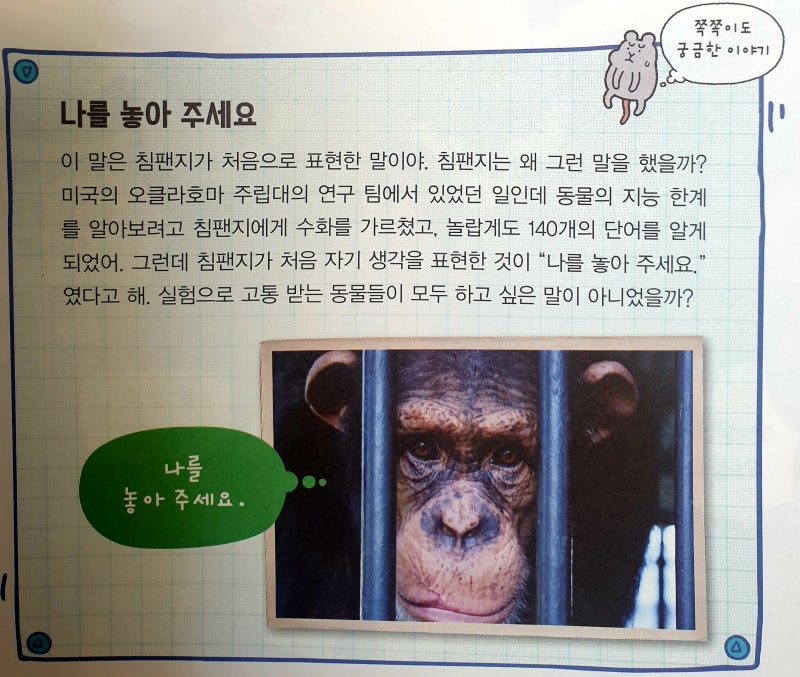 쭉쭉이도
궁금한 이야기
나를 놓아 주세요
이 말은 침팬지가 처음으로 표현한 말이야. 침팬지는 왜 그런 말을 했을까?
미국의 오클라호마 주립대의 연구 팀에서 있었던 일인데 동물의 지능 한계
를 알아보려고 침팬지에게 수화를 가르쳤고, 놀랍게도 140개의 단어를 알게
되었어. 그런데 침팬지가 처음 자기 생각을 표현한 것이 “나를 놓아 주세요.”
였다고 해. 실험으로 고통 받는 동물들이 모두 하고 싶은 말이 아니었을까?
나를
놓아 주세요.